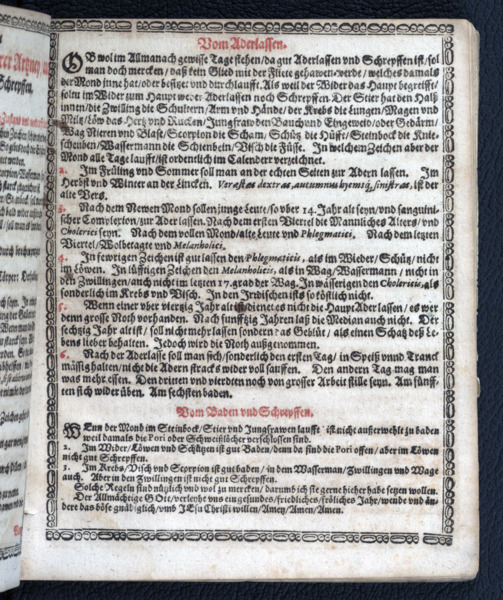 Vom Aderlassen.
OB wol im Allmanach gewisse Tage stehen/da gut Aderlassen vnd Schrepffen ist/sol
man doch mercken/daß kein Glied mit der Fliete gehawen werde/welches damals
der Mond inne hat/oder besitzt vnd durchlaufft. Als weil der Wider das Haupt begreifft/
solm im Wider zum Haupt weder Aderlassen noch Schrepffen. Der Stier hat den Halß
innen/die Zwilling die Schultern/Arm vnd Hände/der Krebs die Lungen/Magen vnd
Miltz/Löw das Hertz vnd Rucken/Jungfraw den Bauch vnd Eingeweid/oder Gedärm/
Wag Nieren vnd Blase/Scorpion die Scham/Schütz die Hüfft/Steinbock die Knie-
scheuben/Wassermann die Schienbein/Visch die Füsse. In welchem Zeichen aber der
Mond alle Tage laufft/ist ordentlich im Calender verzeichnet.
2. Im Früling vnd Sommer soll man an der rechten Seiten zur Adern lassen. Im
Herbst vnd Winter an der Lincken. Ver æstas dextras, autumnus hyemsq́; sinistras, ist der
alte Vers.
3. Nach dem Newen Mond sollen junge Leute/so vber 14. Jahr alt seyn/vnd sanguini-
scher Complexion/zur Ader lassen. Nach dem ersten Viertel die Mannliches Alters/vnd
Cholerici seyn. Nach dem vollen Mond/alte Leute vnd Phlegmatici. Nach dem letzten
Viertel/Wolbetagte vnd Melancholici.
4. In fewrigen Zeichen ist gut lassen den Phlegmaticis, als im Wieder/Schütz/nicht
im Löwen. In lüfftigen Zeichen den Melancholicis, als in Wag/Wassermann/nicht in
den Zwillingen/auch nicht im letzten 17. grad der Wag. In wässerigen den Cholericis, als
sonderlich im Krebs vnd Visch. In den Irdischen ists so köstlich nicht.
5. Wenn einer vber viertzig Jahr alt ist/dienet es nicht die Haupt Ader lassen/es wer
denn grosse Noth vorhanden. Nach funfftzig Jahren laß die Median auch nicht. Der
sechtzig Jahr alt ist/soll nicht mehr lassen sondern das Geblüt/als einen Schatz deß Le-
bens lieber behalten. Jedoch wird die Noth außgenommen.
6. Nach der Aderlasse soll man sich/sonderlich den ersten Tag/in Speiß vnnd Tranck
mässig halten/nicht die Adern stracks wider voll sauffen. Den andern Tag mag man
was mehr essen. Den dritten vnd vierdten noch von grosser Arbeit stille seyn. Am fünff-
ten sich wider üben. Am sechsten baden.
Vom Baden vnd Schrepffen.
WEnn der Mond im Steinbock/Stier vnd Jungfrawen laufft/ist nicht außerwehlt zu baden
weil damals die Pori oder Schweißlöcher verschlossen sind.
2. Im Wider/Löwen vnd Schützen ist gut Baden/denn da sind die Pori offen/aber im Löwen
nicht gut Schrepffen.
3. Im Krebs/Visch vnd Scorpion ist gut baden/in dem Wasserman/Zwillingen vnd Wage
auch. Aber in den Zwillingen ist nicht gut Schrepffen.
Solche Regeln sind nützlich vnd wol zu mercken/darumb ich sie gerne hieher habe setzen wollen.
Der Allmächtige GOtt/verleyhe vns ein gesundes/friedliches/fröliches Jahr/wende vnd än-
dere das böse gnädiglich/vmb JEsu Christi willen/Amen/Amen/Amen.